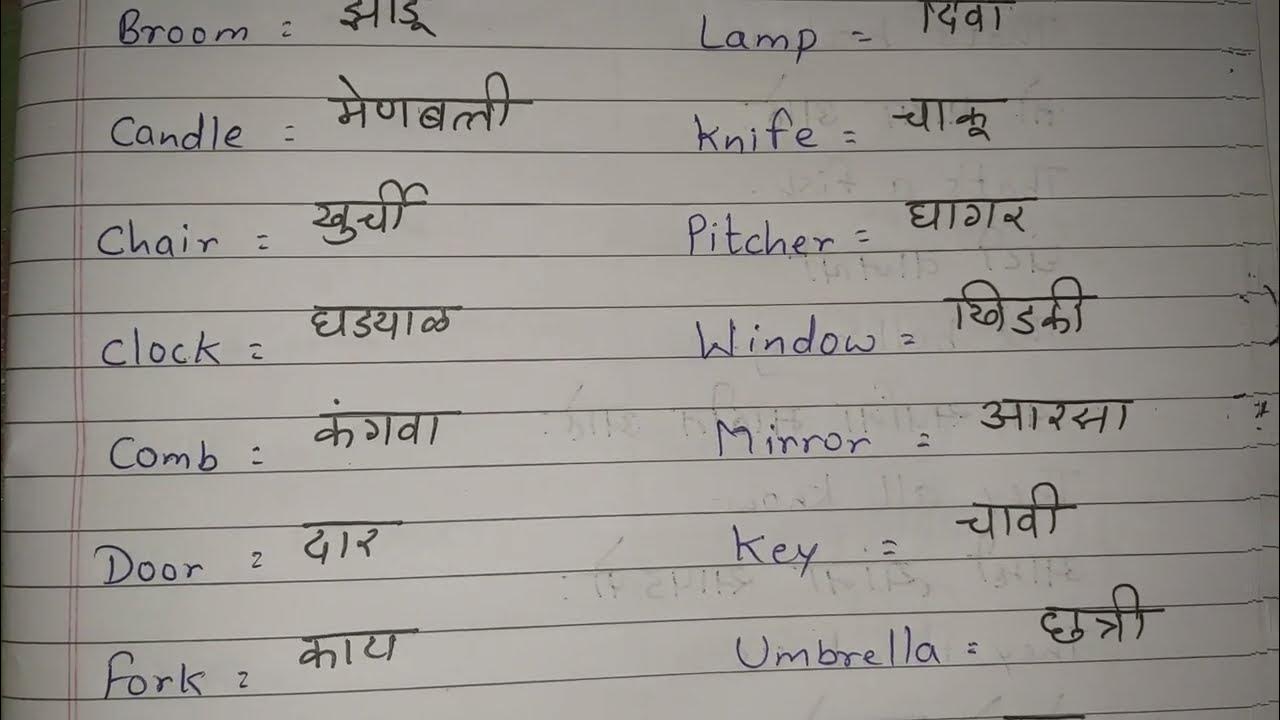 Broom = झाडू Lamp = दिवा
Candle = मेणबत्ती Knife = चाकू
Chair = खुर्ची Pitcher = घागर
Clock = घडयाळ Window = खिडकी
Comb = कंगवा Mirror = आरसा
Door = दार Key = चावी
Fork = काय Umbrella = छत्री